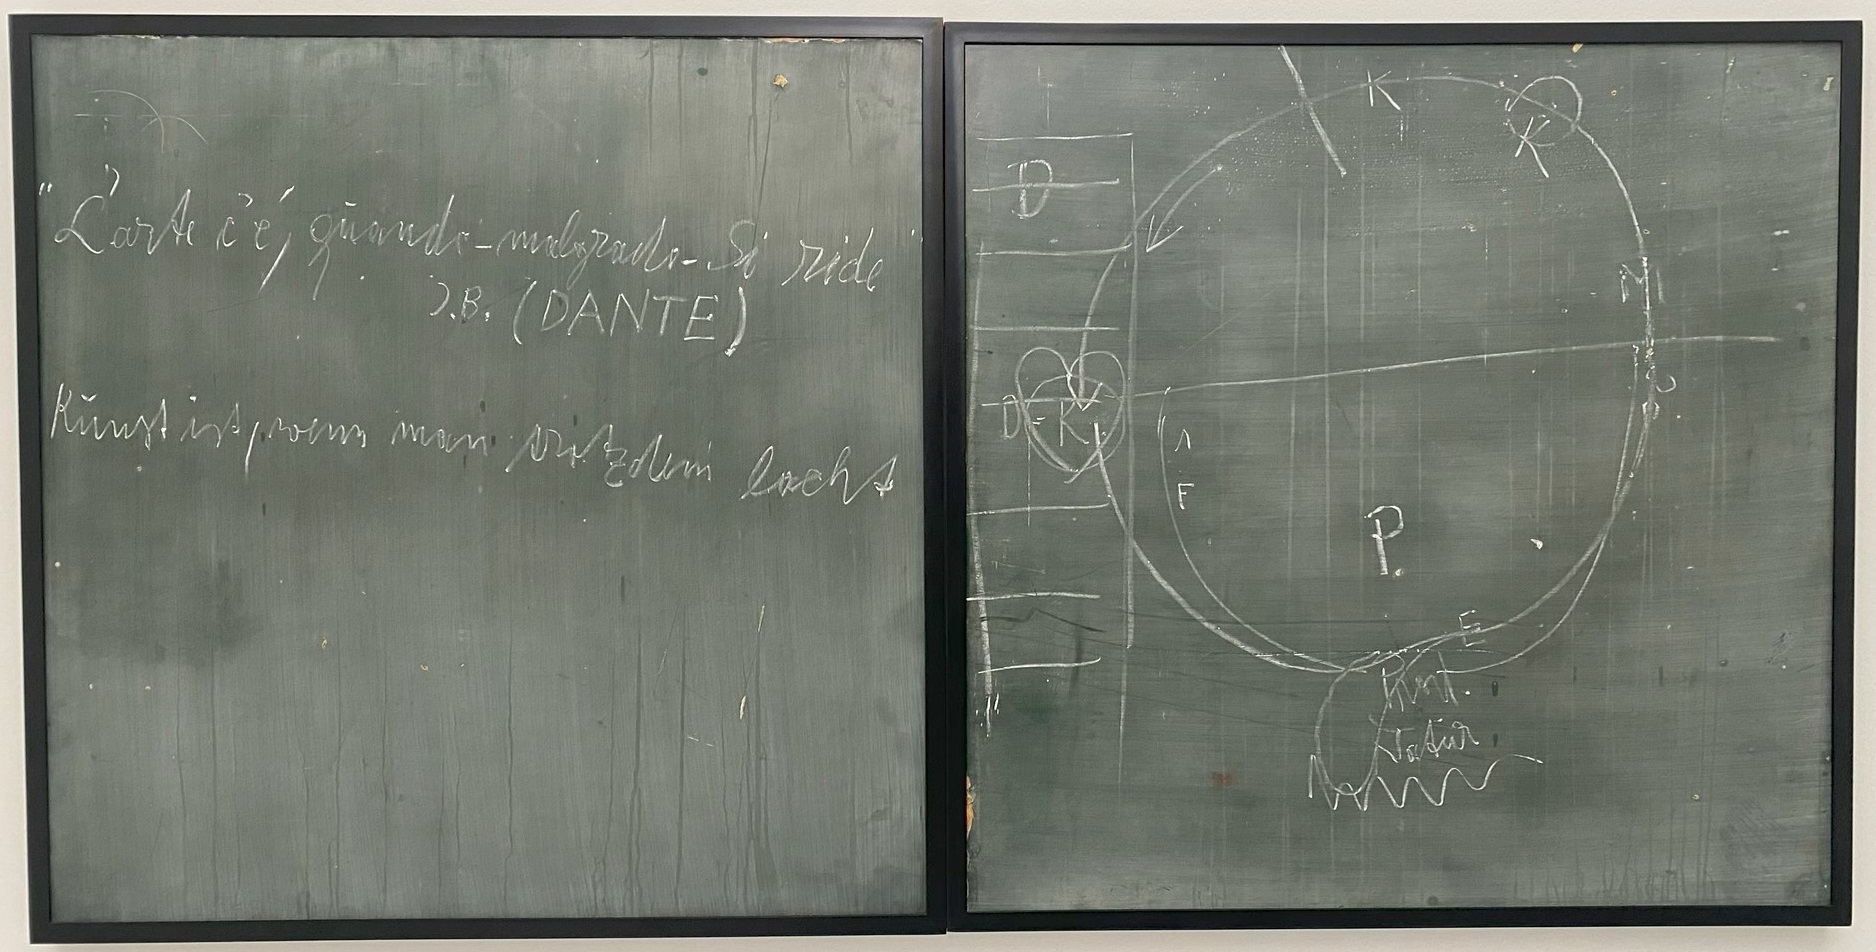 "L'arte c'è, quando - malgrado - Si ride"
J.B. (DANTE)
Kunst ist, wenn man trotzdem lacht
K
K
D
M
D = K
F
P.
E
Natur